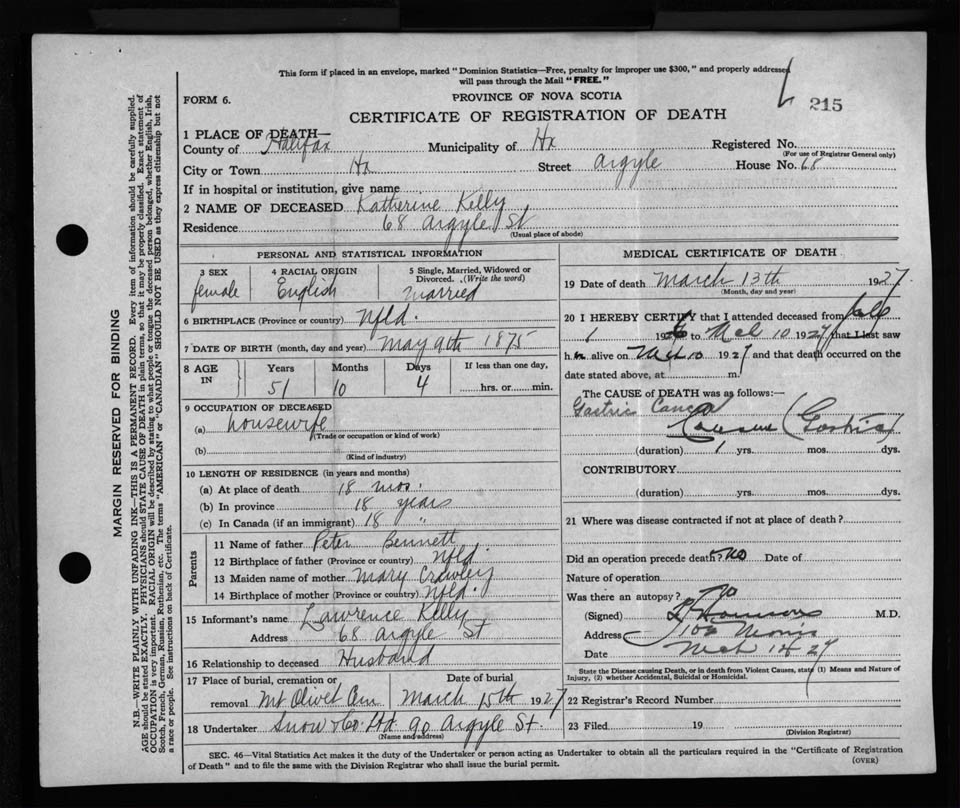 This form if placed in an envelope, marked "Dominion Statistics—Free, penalty for improper use $300," and properly addressed
will pass through the Mail "FREE."
FORM 6.
PROVINCE OF NOVA SCOTIA
215
CERTIFICATE OF REGISTRATION OF DEATH
1 PLACE OF DEATH—
County of Halifax Municipality of Hx Registered No.
(For use of Registrar General only)
City or Town Hx Street Argyle House No. 68
If in hospital or institution, give name
2 NAME OF DECEASED Katherine Kelly
Residence 68 Argyle St
(Usual place of abode)
PERSONAL AND STATISTICAL INFORMATION
3 SEX 4 RACIAL ORIGIN 5 Single, Married, Widowed or
Divorced. (Write the word)
female English Married
6 BIRTHPLACE (Province or country) Nfld.
7 DATE OF BIRTH (month, day and year) May 9th 1875
8 AGE IN Years Months Days If less than one day,
51 10 4 hrs. or min.
9 OCCUPATION OF DECEASED
(a) housewife
(Trade or occupation or kind of work)
(b)
(Kind of industry)
10 LENGTH OF RESIDENCE (in years and months)
(a) At place of death 18 mos.
(b) In province 18 years
(c) In Canada (if an immigrant) 18 "
Parents
11 Name of father Peter Bennett
12 Birthplace of father (Province or country) Nfld.
13 Maiden name of mother Mary Crawley
14 Birthplace of mother (Province or country) Nfld.
15 Informant's name Lawrence Kelly
Address 68 Argyle St
16 Relationship to deceased Husband
17 Place of burial, cremation or removal Date of burial
Mt Olivet Cem March 15th 1927
18 Undertaker Snow & Co. Ltd 90 Argyle St.
(Name and address)
MEDICAL CERTIFICATE OF DEATH
19 Date of death March 13th 1927
(Month, day and year)
20 I HEREBY CERTIFY that I attended deceased from July
1 1926 to Mch 10 1927 that I last saw
h alive on Mch 10 1927 and that death occurred on the
date stated above, at m.
The CAUSE OF DEATH was as follows:—
Gastric Cancer
(Gastric)
(duration) 1 yrs. mos. dys.
CONTRIBUTORY
(duration) yrs. mos. dys.
21 Where was disease contracted if not at place of death?
Did an operation precede death? No Date of
Nature of operation
Was there an autopsy? No
(Signed) M.D.
Address Morris
Date Mch 14 27
State the Disease causing Death, or in death from Violent Causes, state (1) Means and Nature of
Injury, (2) whether Accidental, Suicidal or Homicidal.
22 Registrar's Record Number
23 Filed 19
(Division Registrar)
SEC. 46—Vital Statistics Act makes it the duty of the Undertaker or person acting as Undertaker to obtain all the particulars required in the "Certificate of Registration
of Death" and to file the same with the Division Registrar who shall issue the burial permit.
(OVER)
MARGIN RESERVED FOR BINDING
N.B.—WRITE PLAINLY WITH UNFADING INK—THIS IS A PERMANENT RECORD. Every item of information should be carefully supplied.
AGE should be stated EXACTLY. PHYSICIANS should STATE CAUSE OF DEATH in plain terms, so that it may be properly classified. Exact statement of
OCCUPATION is very important. RACIAL ORIGIN will be described by stating to what people or tongue the deceased person belonged, whether English, Irish,
Scotch, French, German, Russian, Ruthenian, etc. The terms "AMERICAN" or "CANADIAN" SHOULD NOT BE USED as they express citizenship but not
a race or people. See instructions on back of Certificate.